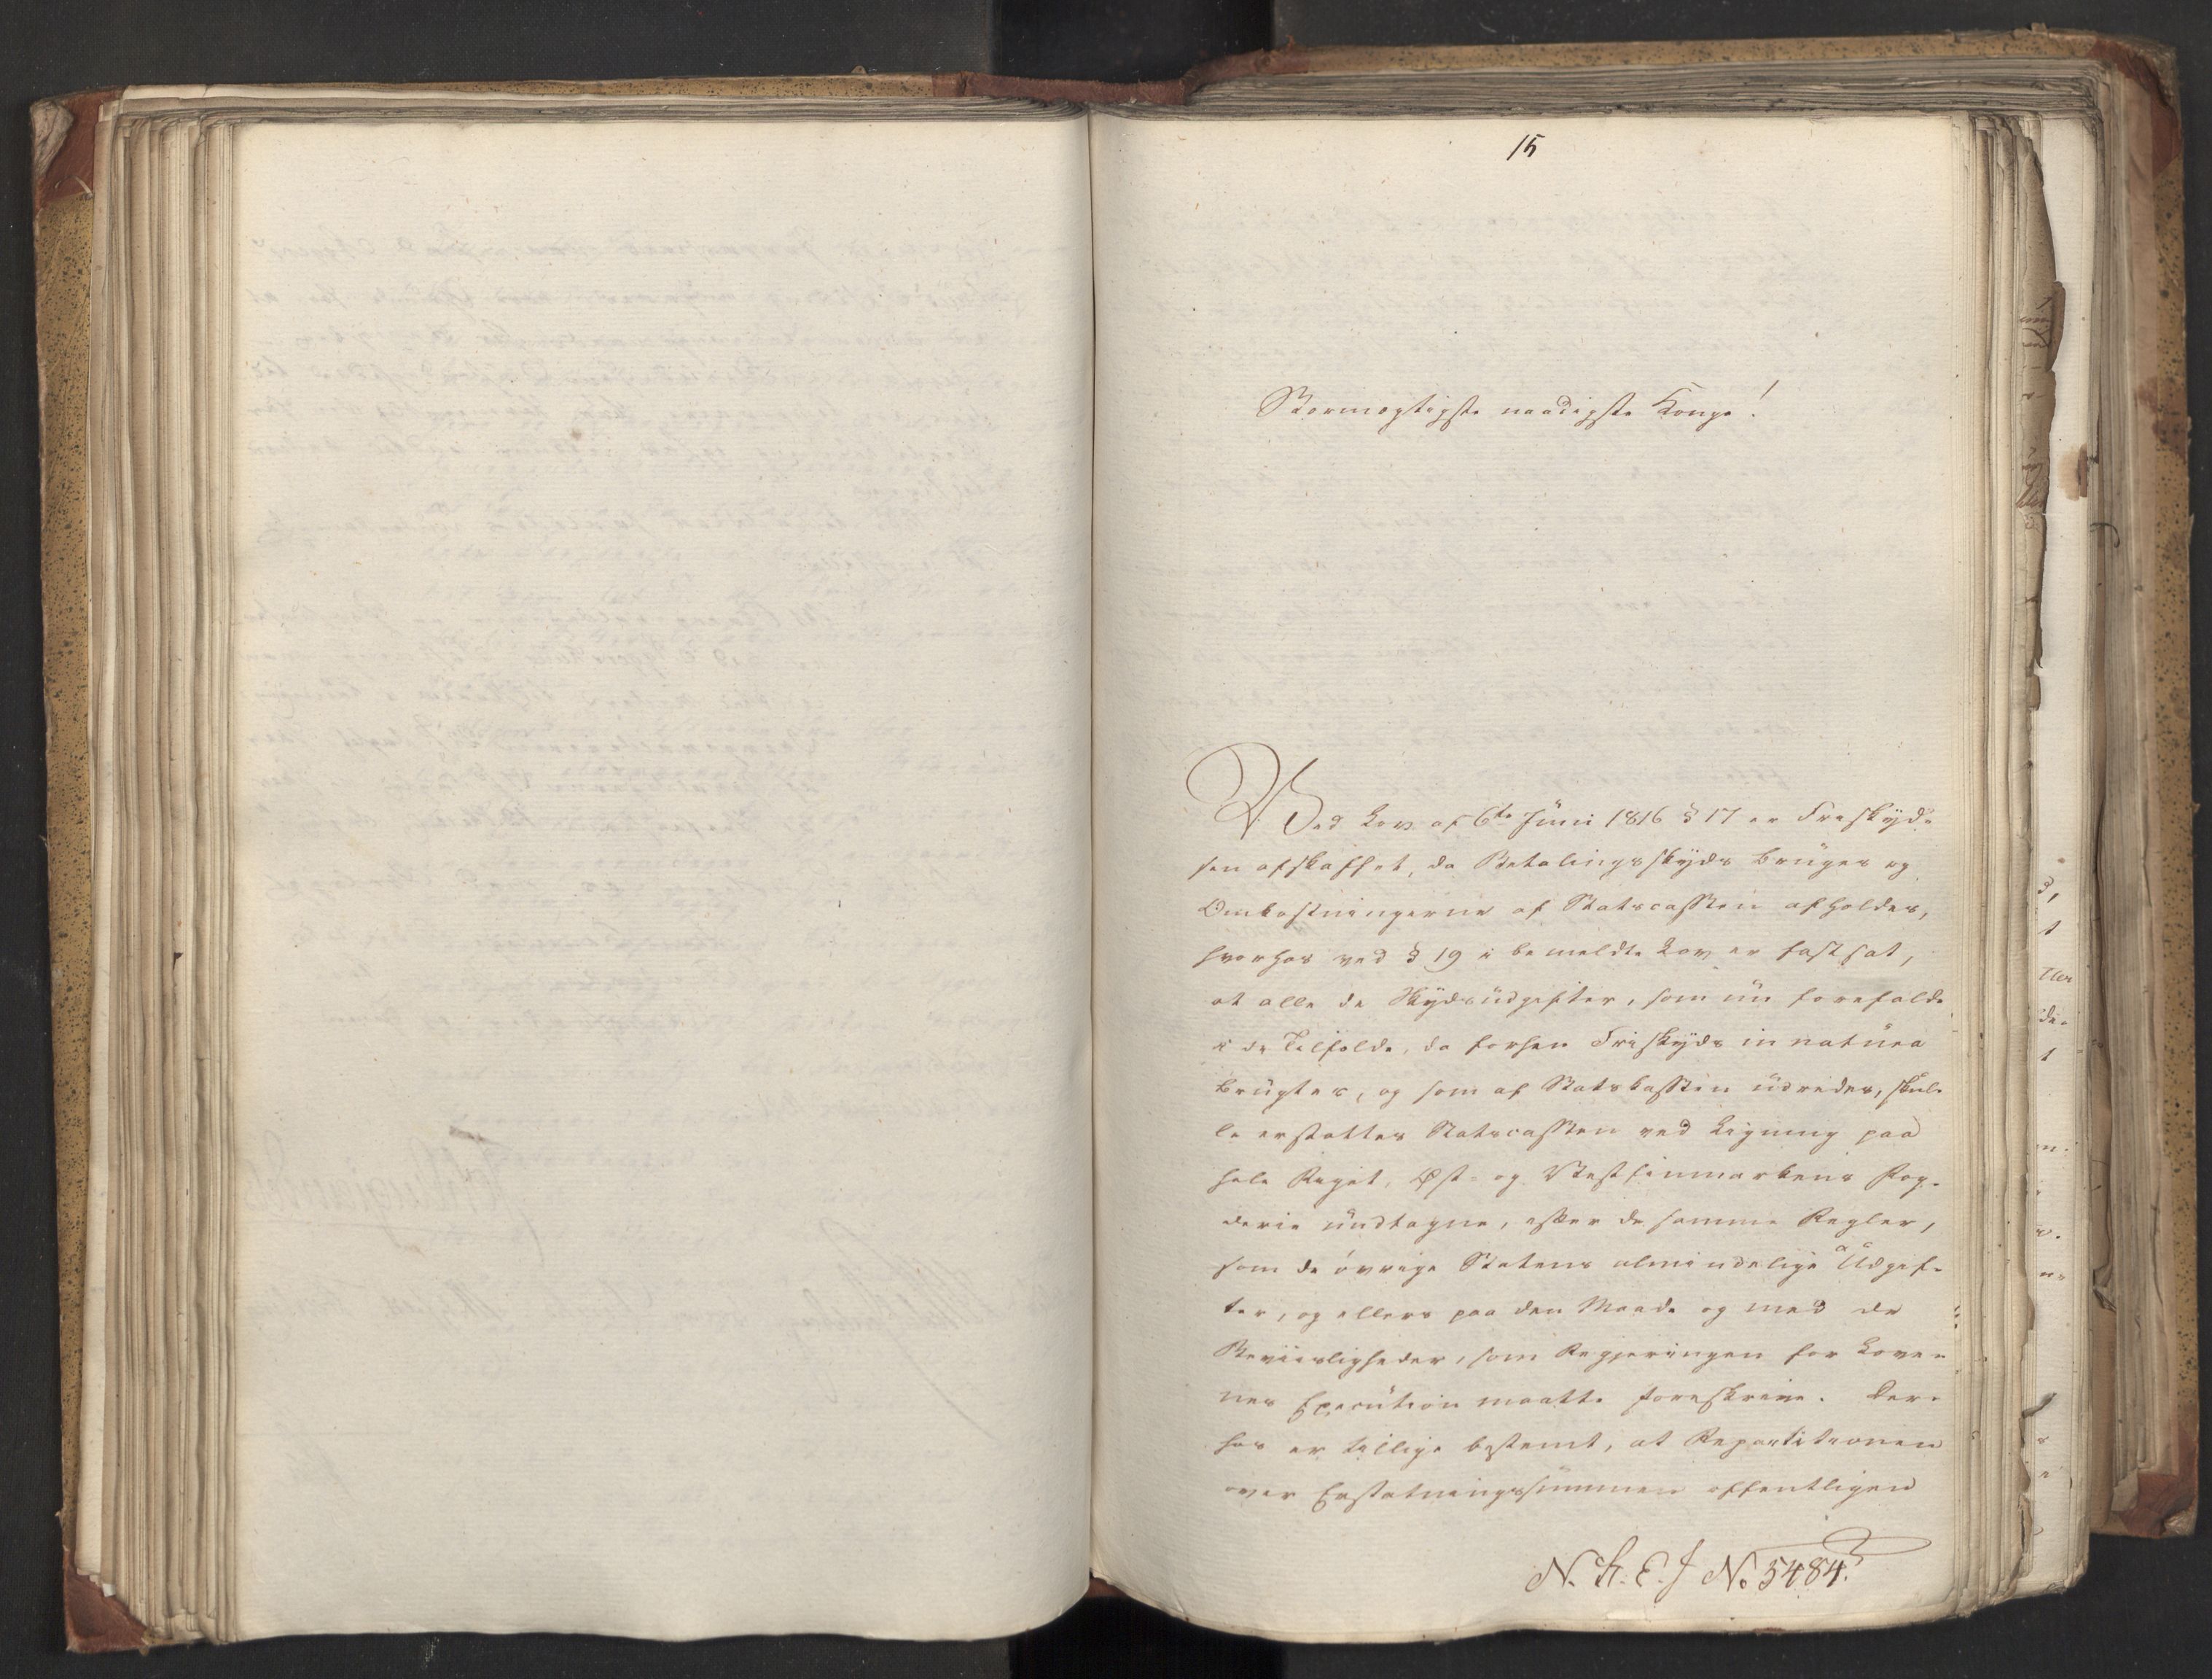 15
Stormægtigste naadigste Konge!
Ved Lov af 6te Juni 1816 § 17 er Friskyds-
sen afskaffet, da Betalingsskyds bruges og
Omkostningerne af Statscassen afholdes,
hvorhos ved § 19 i bemeldte Lov er fastsat,
at alle de Skydsudgifter, som nu forefalde
i de Tilfælde, da forhen Friskyds in natura
brugtes, og som af Statskassen udredes, skul-
le erstattes Statscassen ved Ligning paa
hele Riget, Øst- og Vestfinmarkens Fog-
derie undtagne, efter de samme Regler,
som de øvrige Statens almindelige Udgif-
ter, og ellers paa den Maade og med de
Beviisligheder, som Regjeringen for Love-
nes Execution maatte foreskrive. Der-
hos er tillige bestemt, at Repartitionen
over Erstatningssummen offentligen
N. R. E. J No 5484.